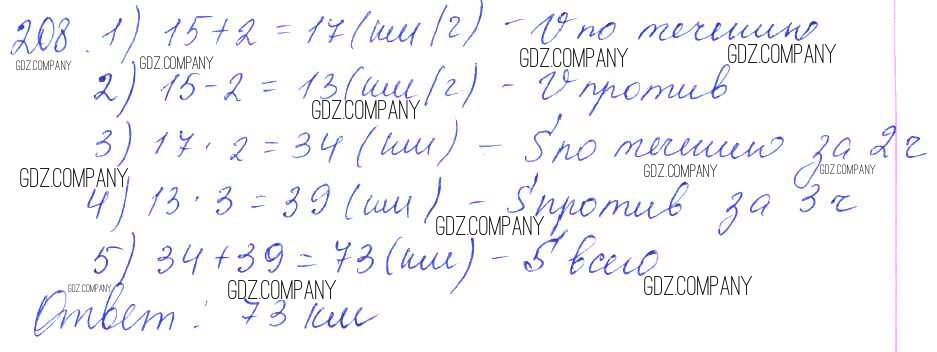 208. 1) 15+2 = 17 (км/г) - V по течению
GDZ.COMPANY GDZ.COMPANY GDZ.COMPANY GDZ.COMPANY
2) 15-2 = 13 (км/г) - V против
GDZ.COMPANY
3) 17 · 2 = 34 (км) - S по течению за 2 ч
GDZ.COMPANY GDZ.COMPANY GDZ.COMPANY
4) 13 · 3 = 39 (км) - S против за 3 ч
GDZ.COMPANY
5) 34+39 = 73 (км) - S всего
GDZ.COMPANY GDZ.COMPANY GDZ.COMPANY
Ответ: 73 км